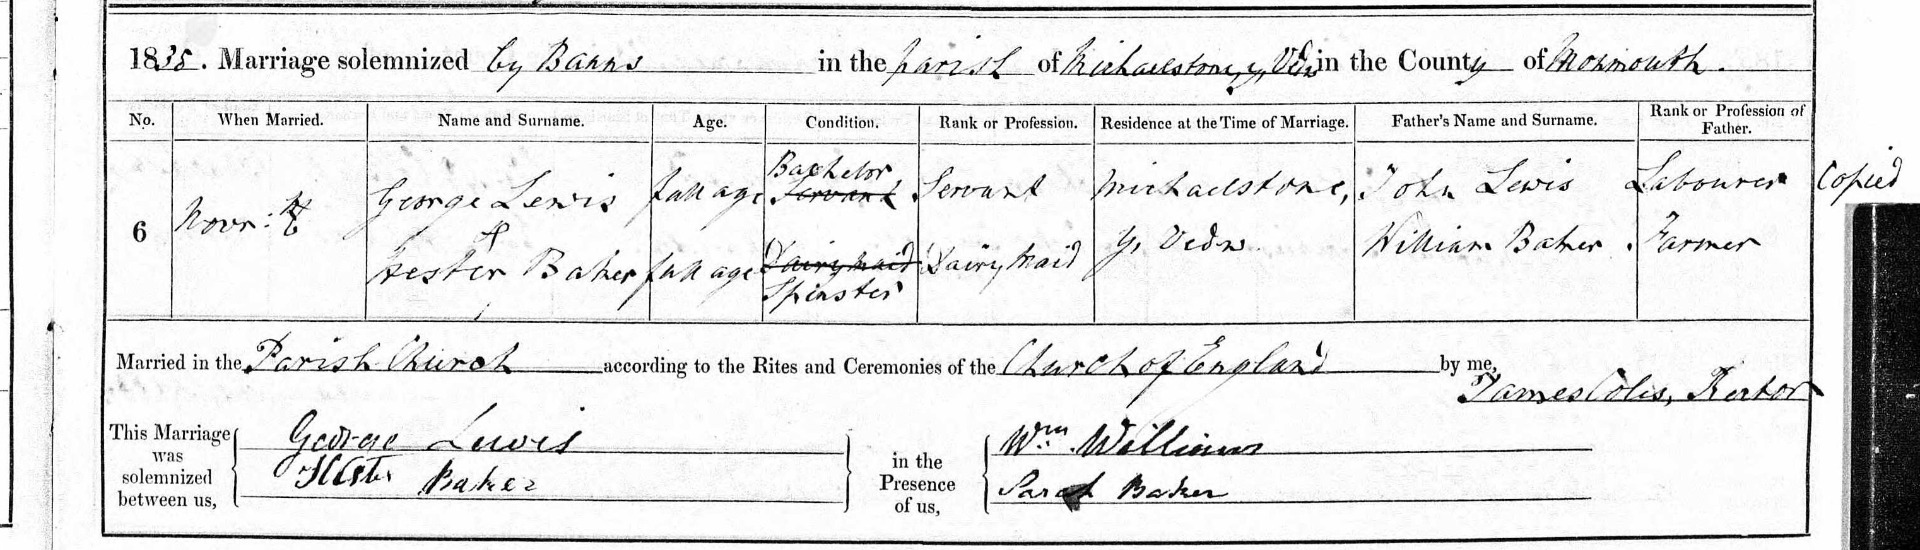 1838. Marriage solemnized by Banns in the parish of Michaelstone, y, Vedw in the County of Monmouth.
No. When Married. Name and Surname. Age. Condition. Rank or Profession. Residence at the Time of Marriage. Father's Name and Surname. Rank or Profession of Father.
6 Novr: George Lewis full age Bachelor Servant Servant Michaelstone, John Lewis Labourer Copied
&
Hester Baker full age Dairy Maid Spinster Dairy Maid y, Vedw William Baker Farmer
Married in the Parish Church according to the Rites and Ceremonies of the Church of England by me,
James Coles, Rector
This Marriage was solemnized between us,
George Lewis
Hester Baker
in the Presence of us,
Wm. Williams
Sarah Baker